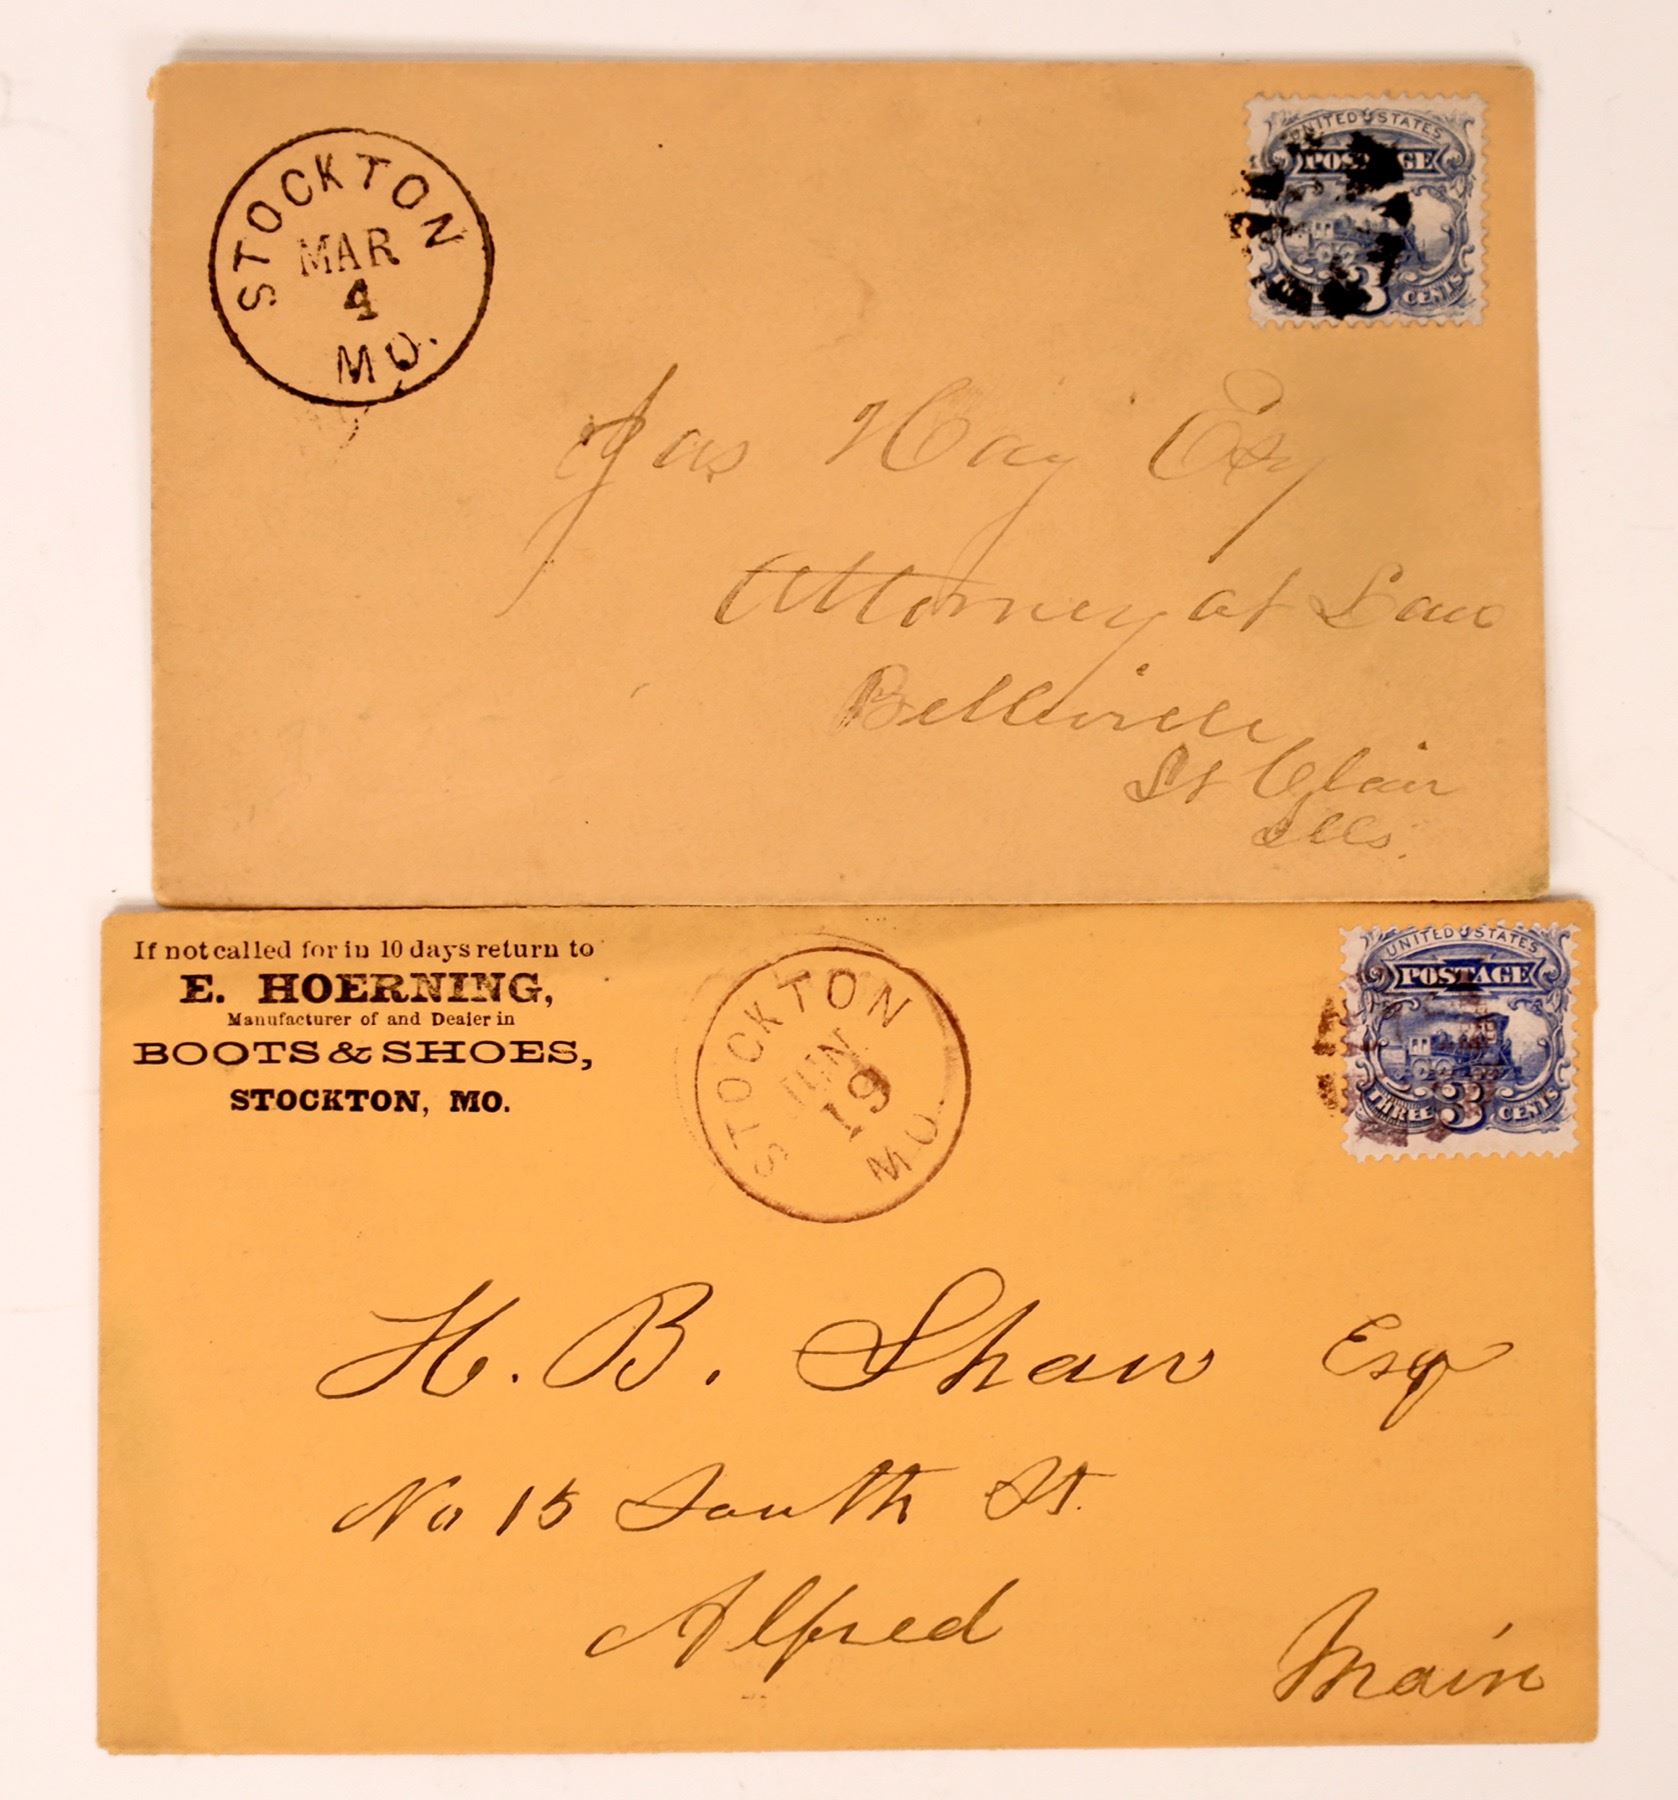 STOCKTON
MAR
4
MO.
UNITED STATES
POSTAGE
3 CENTS
Jas Hay Esq
Attorney at Law
Belleville
St Clair
Ills.
If not called for in 10 days return to
E. HOERNING,
Manufacturer of and Dealer in
BOOTS & SHOES,
STOCKTON, MO.
STOCKTON
JUN
19
MO.
UNITED STATES
POSTAGE
THREE 3 CENTS
H. B. Shaw Esq
No 15 South St.
Alfred
Main